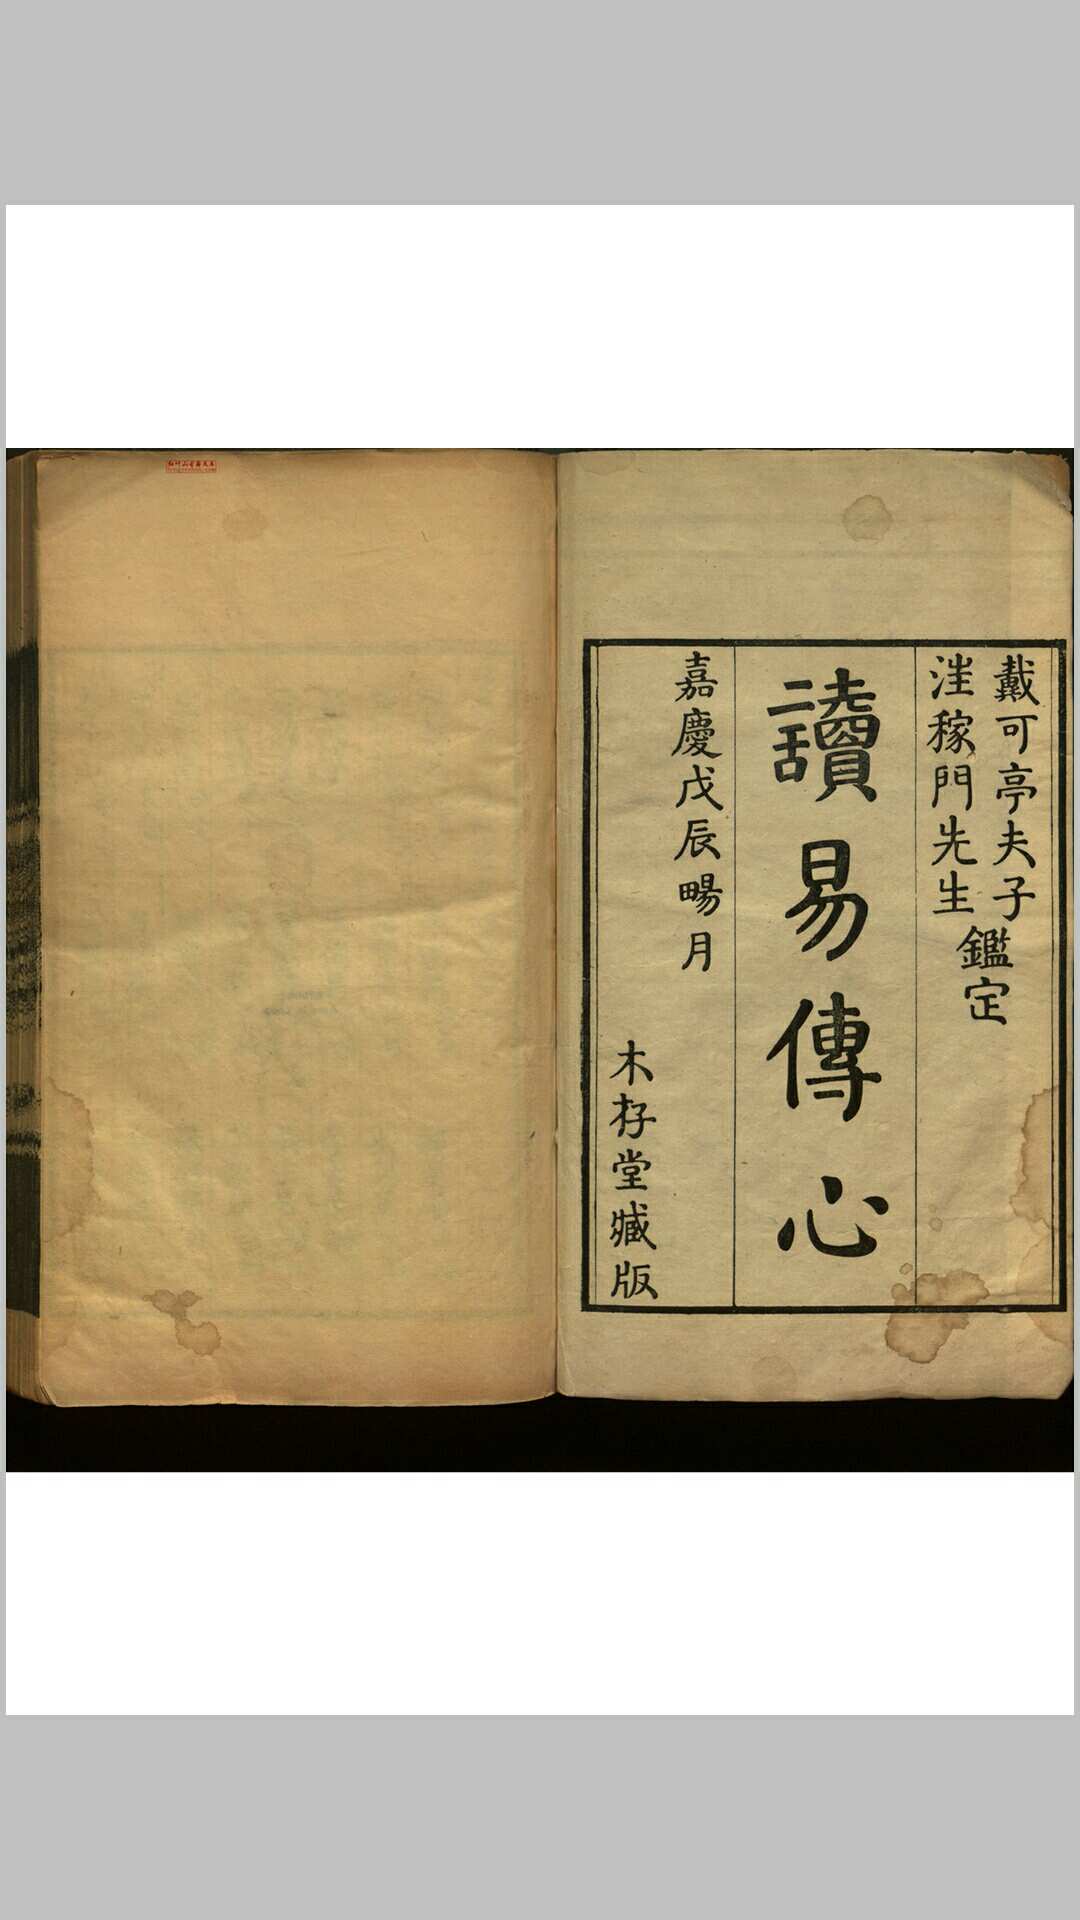 戴可亭夫子
汪稼門先生
鑑定
讀易傳心
嘉慶戊辰暢月
木存堂藏版